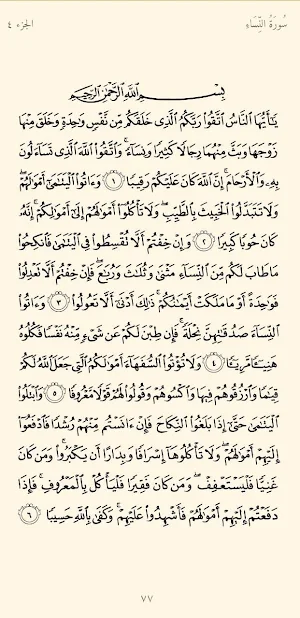 سُورَةُ النِّسَاءِ
الجزء ٤
بِسْمِ اللَّهِ الرَّحْمَٰنِ الرَّحِيمِ
يَٰٓأَيُّهَا ٱلنَّاسُ ٱتَّقُوا۟ رَبَّكُمُ ٱلَّذِى خَلَقَكُم مِّن نَّفْسٍ وَٰحِدَةٍ وَخَلَقَ مِنْهَا
زَوْجَهَا وَبَثَّ مِنْهُمَا رِجَالًا كَثِيرًا وَنِسَآءً ۚ وَٱتَّقُوا۟ ٱللَّهَ ٱلَّذِى تَسَآءَلُونَ
بِهِۦ وَٱلْأَرْحَامَ ۚ إِنَّ ٱللَّهَ كَانَ عَلَيْكُمْ رَقِيبًا ١ وَءَاتُوا۟ ٱلْيَتَٰمَىٰٓ أَمْوَٰلَهُمْ ۖ
وَلَا تَتَبَدَّلُوا۟ ٱلْخَبِيثَ بِٱلطَّيِّبِ ۖ وَلَا تَأْكُلُوٓا۟ أَمْوَٰلَهُمْ إِلَىٰٓ أَمْوَٰلِكُمْ ۚ إِنَّهُۥ
كَانَ حُوبًا كَبِيرًا ٢ وَإِنْ خِفْتُمْ أَلَّا تُقْسِطُوا۟ فِى ٱلْيَتَٰمَىٰ فَٱنكِحُوا۟
مَا طَابَ لَكُم مِّنَ ٱلنِّسَآءِ مَثْنَىٰ وَثُلَٰثَ وَرُبَٰعَ ۖ فَإِنْ خِفْتُمْ أَلَّا تَعْدِلُوا۟
فَوَٰحِدَةً أَوْ مَا مَلَكَتْ أَيْمَٰنُكُمْ ۚ ذَٰلِكَ أَدْنَىٰٓ أَلَّا تَعُولُوا۟ ٣ وَءَاتُوا۟
ٱلنِّسَآءَ صَدُقَٰتِهِنَّ نِحْلَةً ۚ فَإِن طِبْنَ لَكُمْ عَن شَىْءٍ مِّنْهُ نَفْسًا فَكُلُوهُ
هَنِيٓـًٔا مَّرِيٓـًٔا ٤ وَلَا تُؤْتُوا۟ ٱلسُّفَهَآءَ أَمْوَٰلَكُمُ ٱلَّتِى جَعَلَ ٱللَّهُ لَكُمْ
قِيَٰمًا وَٱرْزُقُوهُمْ فِيهَا وَٱكْسُوهُمْ وَقُولُوا۟ لَهُمْ قَوْلًا مَّعْرُوفًا ٥ وَٱبْتَلُوا۟
ٱلْيَتَٰمَىٰ حَتَّىٰٓ إِذَا بَلَغُوا۟ ٱلنِّكَاحَ فَإِنْ ءَانَسْتُم مِّنْهُمْ رُشْدًا فَٱدْفَعُوٓا۟
إِلَيْهِمْ أَمْوَٰلَهُمْ ۖ وَلَا تَأْكُلُوهَآ إِسْرَافًا وَبِدَارًا أَن يَكْبَرُوا۟ ۚ وَمَن كَانَ
غَنِيًّا فَلْيَسْتَعْفِفْ ۖ وَمَن كَانَ فَقِيرًا فَلْيَأْكُلْ بِٱلْمَعْرُوفِ ۚ فَإِذَا
دَفَعْتُمْ إِلَيْهِمْ أَمْوَٰلَهُمْ فَأَشْهِدُوا۟ عَلَيْهِمْ ۚ وَكَفَىٰ بِٱللَّهِ حَسِيبًا ٦
٧٧